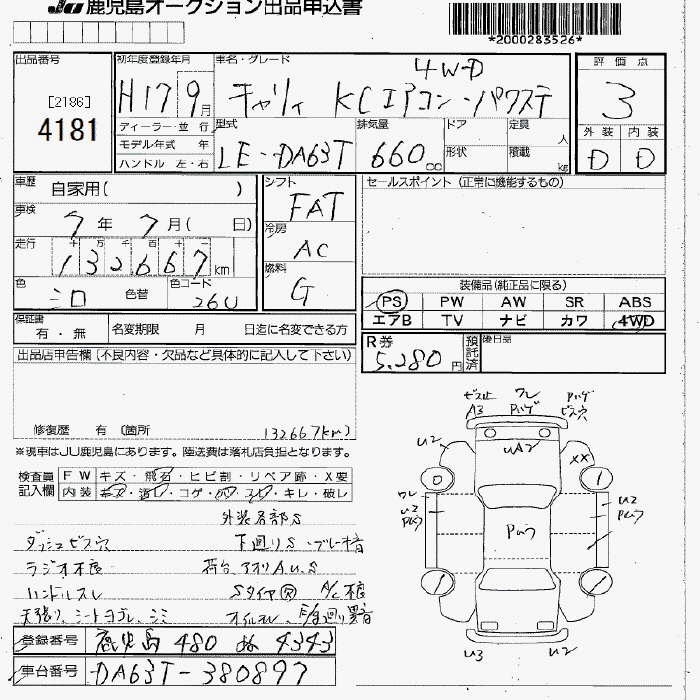 JU 鹿児島オークション出品申込書
*2000283526*
出品番号
[2186]
4181
初年度登録年月
H17 9月
車名・グレード
4WD
キャリィ KCエアコン・パワステ
評価点
3
外装 内装
D D
ディーラー・並行
モデル年式 年
ハンドル 左・右
型式
LE-DA63T
排気量
660cc
ドア
形状
定員 人
積載 kg
車歴 自家用( )
車検 7年7月( 日)
走行 十万千百十一
132667km
色 シロ 色替 色コード 26U
シフト FAT
冷房 AC
燃料 G
セールスポイント (正常に機能するもの)
装備品(純正品に限る)
PS PW AW SR ABS
エアB TV ナビ カワ 4WD
保証書 有・無
名変期限 月 日迄に名変できる方
R券 5,280円
預託済
後日品
出品店申告欄(不良内容・欠品など具体的に記入して下さい)
修復歴 有 (箇所 132667km)
※現車はJU鹿児島にあります。陸送費は落札店負担となります。
検査員記入欄
FW キズ・飛石・ヒビ割・リペア跡・X要
内装 キズ・汚レ・コゲ・穴・スレ・キレ・破レ
外装各部S
ダッシュビス穴 下廻りS・ブレーキ音
ラジオ不良 荷台、アオリA.U.S
ハンドルスレ Sタイヤ A/C不良
天張り、シートヨゴレ、シミ オイルモレ、
登録番号 鹿児島 480 ぬ 4343
車台番号 DA63T-380897
ビス止 ワレ Pハゲ
A3 Pハゲ ビス穴
U2 UA2 XX
0 1
ワレ
U2 U2
Pムラ Pムラ Pムラ
U3 U2